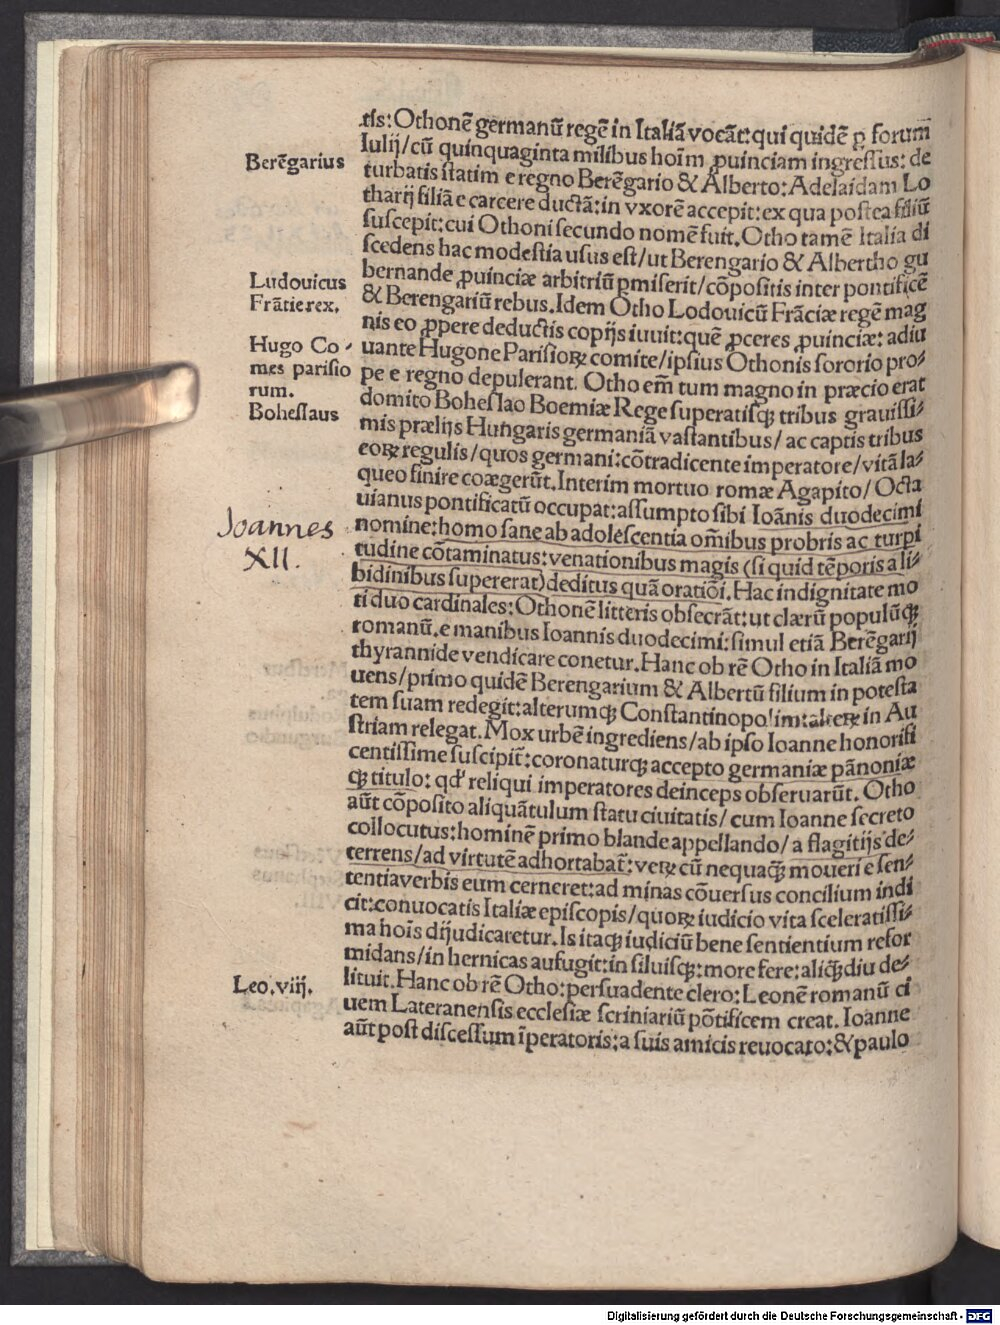 tis: Othonē germanū regē in Italiā vocāt: qui quidē ꝑ forum
Iulij/cū quinquaginta milibus hoīm ꝓuinciam ingressus: de
Berēgarius
turbatis statim e regno Berēgario & Alberto: Adelaidam Lo
tharij filiā e carcere ductā: in vxorē accepit: ex qua postea filiū
suscepit: cui Othoni secundo nomē fuit. Otho tamē Italia di
scedens hac modestia usus est/ut Berengario & Albertho gu
Ludouicus
bernande ꝓuinciæ arbitriū ꝑmiserit/cōpositis inter pontificē
Frātie rex.
& Berengariū rebus. Idem Otho Lodouicū Frāciæ regē mag
nis eo ꝓpere deductis copijs iuuit: quē ꝓceres ꝓuinciæ: adiu
Hugo Co-
mes parisio
rum.
uante Hugone Parisioꝝ comite/ipsius Othonis sororio pro-
pe e regno depulerant. Otho em̄ tum magno in præcio erat
Boheslaus
domito Boheslao Boemiæ Rege superatisqꝫ tribus grauissi-
mis prælijs Hungaris germaniā vastantibus/ ac captis tribus
eoꝝ regulis/quos germani: cōtradicente imperatore/vitā la-
queo finire coægerūt. Interim mortuo romæ Agapito/ Octa
uianus pontificatū occupat: assumpto sibi Ioānis duodecimi
Joannes
XII.
nomine: homo sane ab adolescentia om̄ibus probris ac turpi
tudine cōtaminatus: venationibus magis (si quid tēporis a li-
bidinibus supererat) deditus quā oratiōi. Hac indignitate mo
ti duo cardinales: Othonē litteris obsecrāt: ut clærū populūqꝫ
romanū. e manibus Ioannis duodecimi: simul etiā Berēgarij
thyrannide vendicare conetur. Hanc ob rē Otho in Italiā mo
uens/primo quidē Berengarium & Albertū filium in potesta
tem suam redegit: alterumqꝫ Constantinopolim: alteꝝ in Au
striam relegat. Mox urbē ingrediens/ab ipso Ioanne honorifi
centissime suscipit̄: coronaturqꝫ accepto germaniæ pānoniæ
qꝫ titulo: qd' reliqui imperatores deinceps obseruarūt. Otho
aūt cōposito aliquātulum statu ciuitatis/ cum Ioanne secreto
collocutus: hominē primo blande appellando/ a flagitijs de-
terrens/ad virtutē adhortabat̄: veꝝ cū nequaqꝫ moueri e sen-
tentia verbis eum cerneret: ad minas cōuersus concilium indi
cit: conuocatis Italiæ episcopis/quoꝝ iudicio vita sceleratissi-
ma hoīs dijudicaretur. Is itaqꝫ iudiciū bene sentientium refor
midans/in hernicas aufugit: in siluisqꝫ: more fere: aliqꝫdiu de-
Leo. viij.
lituit. Hanc ob rē Otho: persuadente clero: Leonē romanū ci
uem Lateranensis ecclesiæ scriniariū pōtificem creat. Ioanne
aūt post discessum īperatoris: a suis amicis reuocato: & paulo
Digitalisierung gefördert durch die Deutsche Forschungsgemeinschaft - DFG